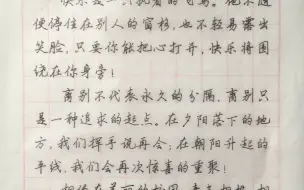 快乐是一只执着的飞鸟。他不随
便停住在别人的窗杉，也不轻易露出
笑脸，只要你能把心打开，快乐将围
绕在你身旁！
离别不代表永久的分隔，离别只
是一种追求的起点。在夕阳落下的地
方，我们挥手说再会，在朝阳升起的
平线，我们会再次惊喜的重聚！